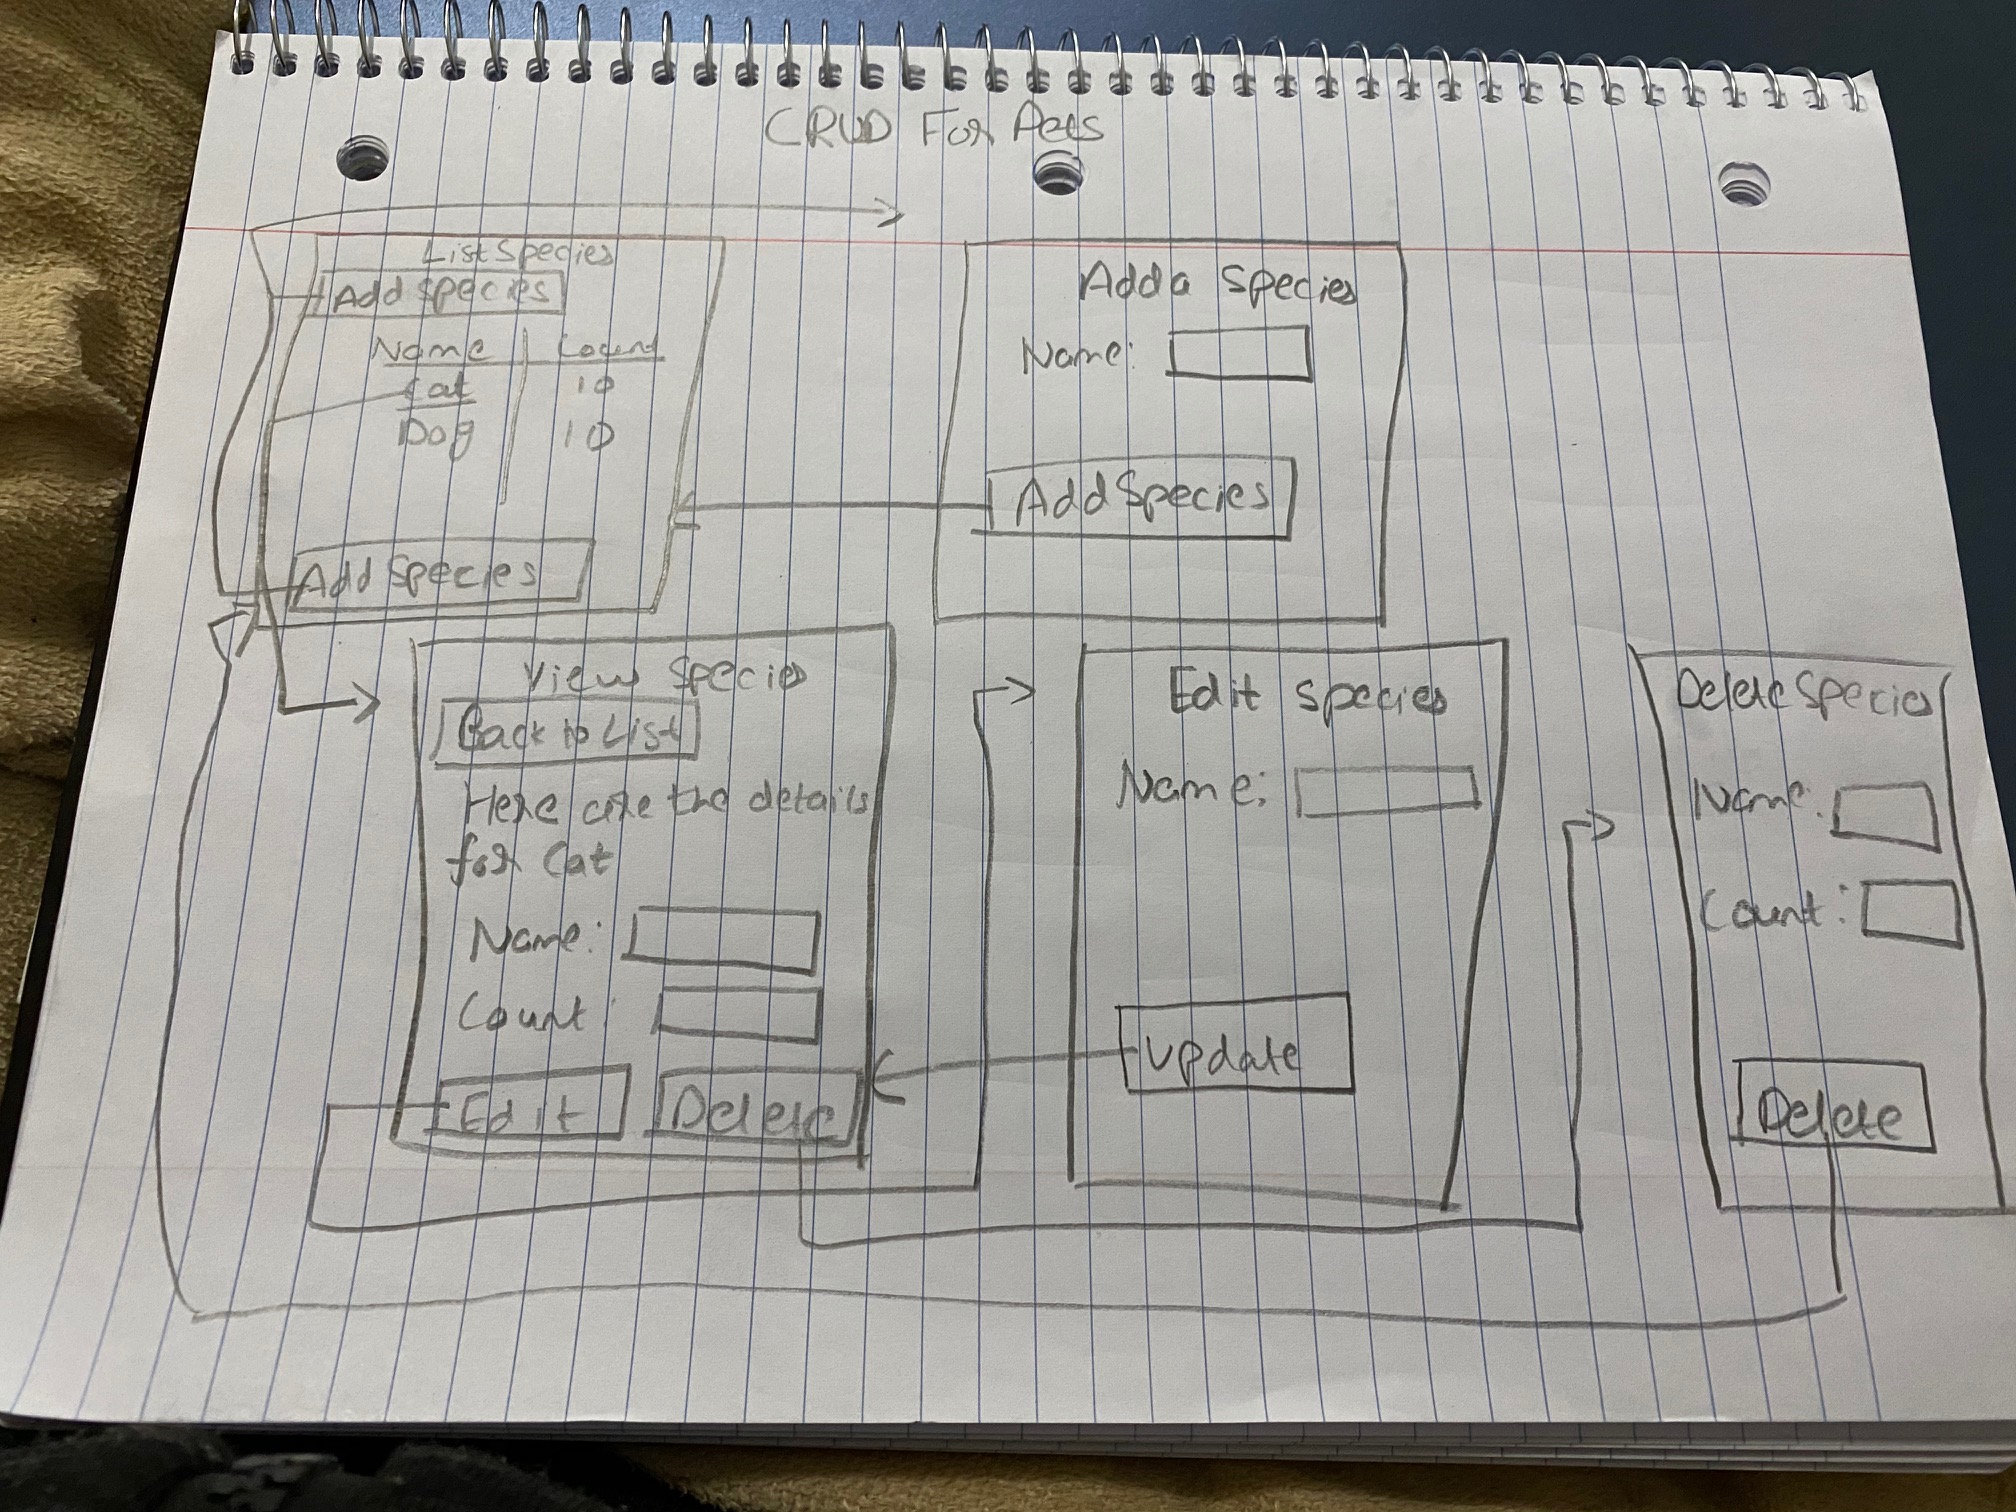 CRUD For Pets
List Species
Add Species
Name Count
Cat 10
Dog 10
Add Species
Add a Species
Name:
Add Species
View Species
Back to List
Here are the details
for Cat
Name:
Count:
Edit Delete
Edit Species
Name:
Update
Delete Species
Name:
Count:
Delete